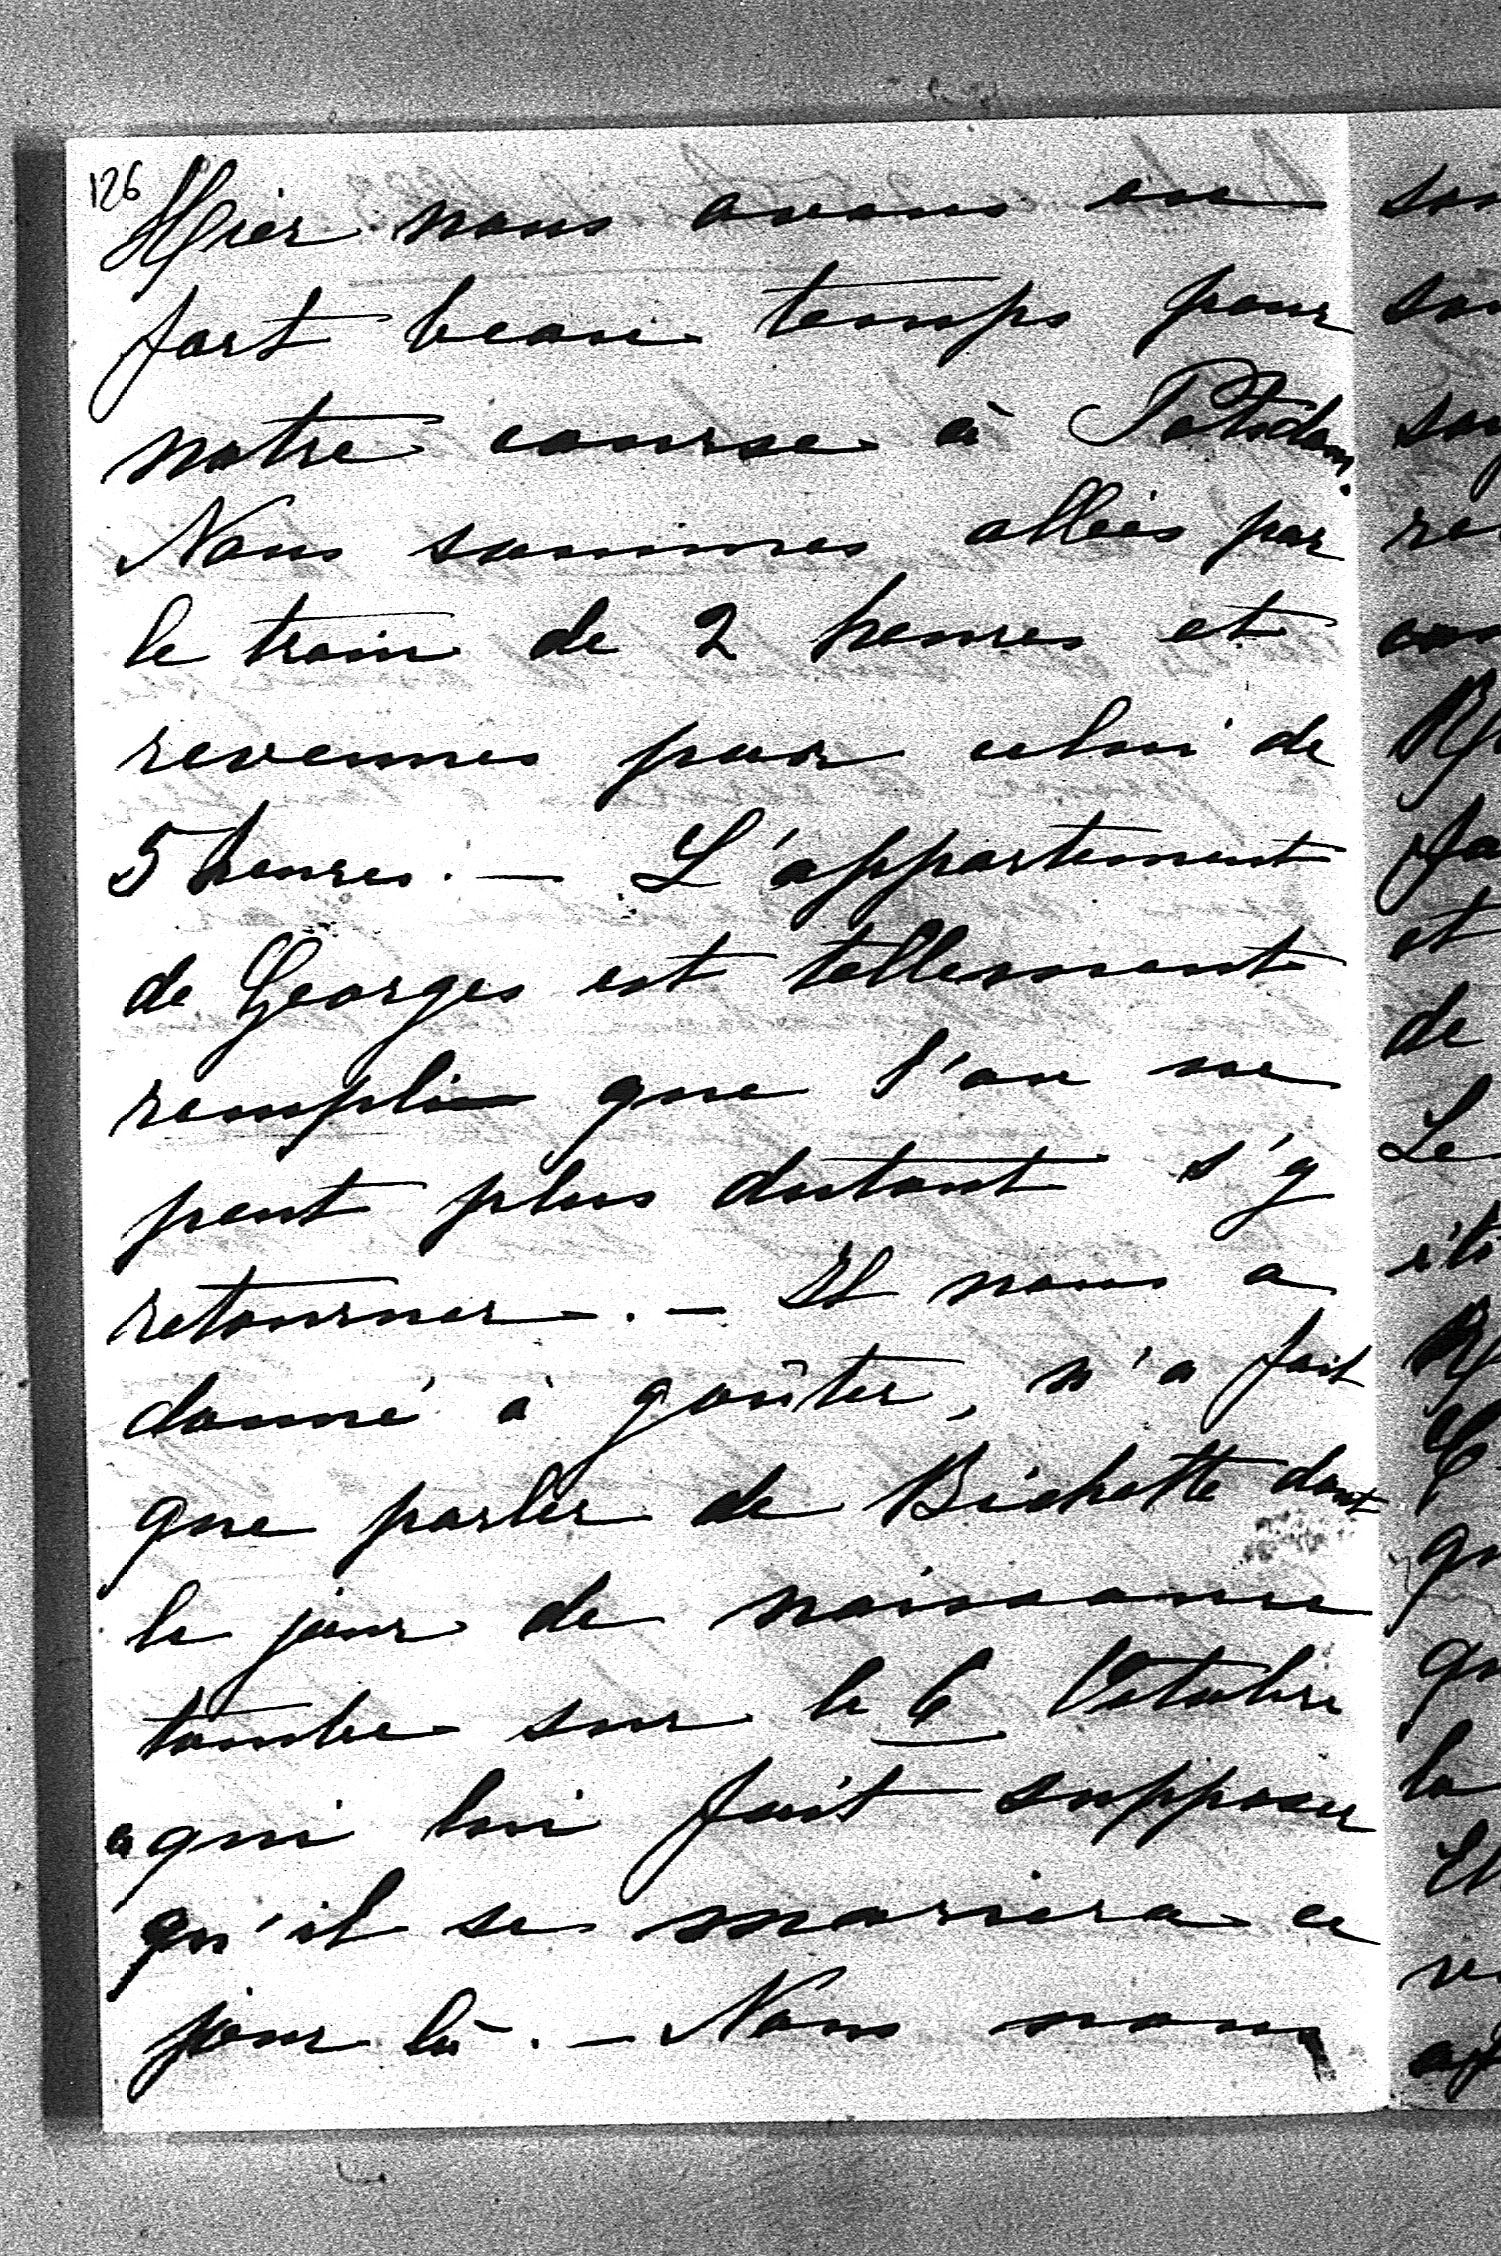 126
Hier nous avons eu
fort beau temps pour
notre course à Potsdam.
Nous sommes allées par
le train de 2 heures et
revenues par celui de
5 heures. — L'appartement
de Georges est tellement
rempli que l'on ne
peut plus dutout s'y
retourner. — Il nous a
donné à goûter, n'a fait
que parler de Bichette dont
le jour de naissance
tombe sur le 6 Octobre
qui lui fait supposer
qu'il se mariera ce
jour là. — Nous nous